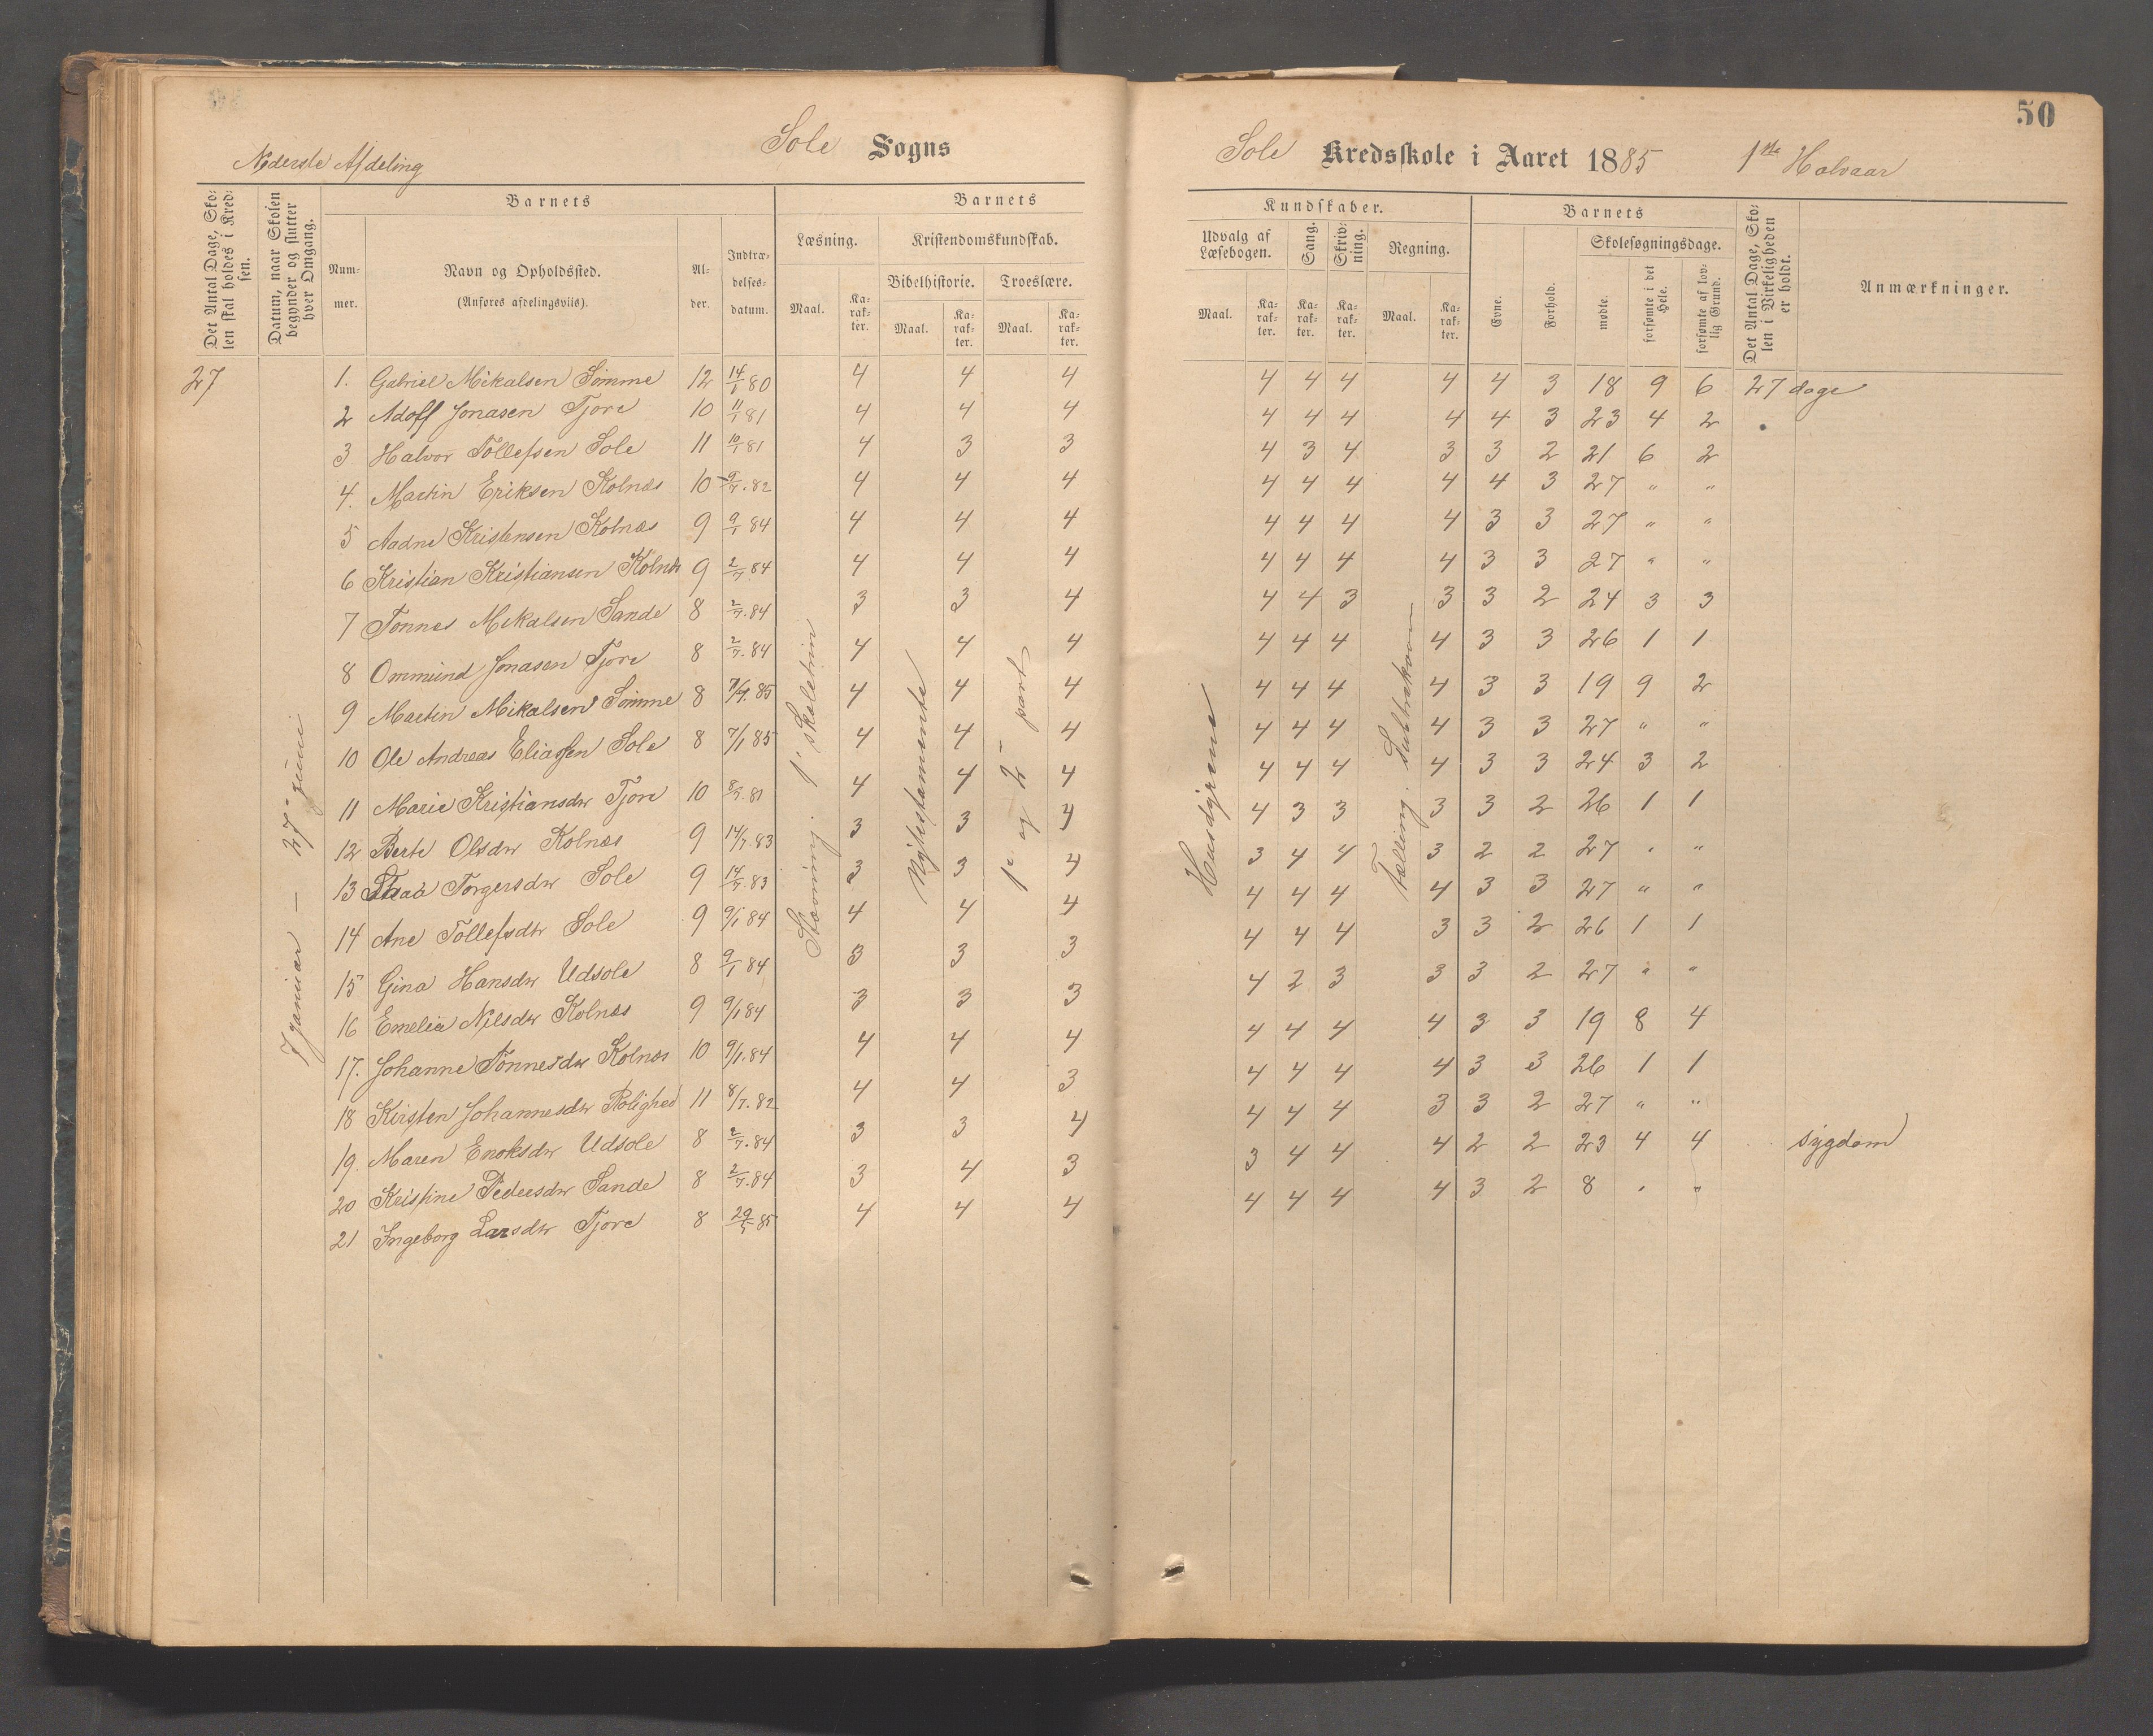 50
Nederste Afdeling
Sole Sogns
Sole Kredsskole i Aaret 1885 1ste Halvaar
Det Antal Dage, Skolen skal holdes i Kredsen.
Datum, naar Skolen begynder og slutter hver Omgang.
Barnets
Nummer.
Navn og Opholdssted.
(Anføres afdelingsviis).
Alder.
Indtrædelsesdatum.
Barnets
Læsning.
Maal.
Karakter.
Kristendomskundskab.
Bibelhistorie.
Maal.
Karakter.
Troeslære.
Maal.
Karakter.
Kundskaber.
Udvalg af Læsebogen.
Maal.
Karakter.
Sang.
Karakter.
Skrivning.
Karakter.
Regning.
Maal.
Karakter.
Barnets
Evne.
Forhold.
Skolesøgningsdage.
mødte.
forsømte i det Hele.
forsømte af lovlig Grund.
Det Antal Dage, Skolen i Virkeligheden er holdt.
Anmærkninger.
27
7 januar – 27 juni
Staving. 1' Skoletrin
Nytestamente
1ste og 2 part
Husdyrene
Tælling. Subtraksion
1. Gabriel Mikalsen Sömme 12 14/1 80 4 4 4 4 4 4 4 4 3 18 9 6 27 dage
2 Adolf Jonasen Tjore 10 11/1 81 4 4 4 4 4 4 4 4 3 23 4 2
3 Halvor Tollefsen Sole 11 10/1 81 4 3 3 4 3 4 3 3 2 21 6 2
4. Martin Eriksen Kolnæs 10 5/7. 82 4 4 4 4 4 4 4 4 3 27 " "
5 Aadne Kristensen Kolnæs 9 9/1 84 4 4 4 4 4 4 4 3 3 27 " "
6 Kristian Kristiansen Kolnæs 9 2/7 84 4 4 4 4 4 4 4 3 3 27 " "
7 Tønnes Mikalsen Sande 8 2/7. 84 3 3 4 4 4 3 3 3 2 24 3 3
8 Ommund Jonasen Tjore 8 2/7. 84 4 4 4 4 4 4 4 3 3 26 1 1
9 Martin Mikalsen Sömme 8 7/1. 85 4 4 4 4 4 4 4 3 3 19 9 2
10 Ole Andreas Eliassen Sole 8 7/1 85 4 4 4 4 4 4 4 3 3 27 " "
11 Marie Kristiansdtr Tjore 10 8/7. 81 4 4 4 4 4 4 4 3 3 24 3 2
12 Berte Olsdtr Kolnæs 9 14/7. 83 3 3 4 4 3 3 3 3 2 26 1 1
13 Torgersdtr Sole 9 14/7. 83 3 3 4 3 4 4 3 2 2 27 " "
14 Ane Tollefsdtr Sole 9 9/1 84 4 4 4 4 4 4 4 3 3 27 " "
15 Gina Hansdtr Udsole 8 9/1 84 3 3 3 4 4 4 3 3 2 26 1 1
16 Emelia Nilsdtr Kolnæs 9 9/1 84 3 3 3 4 2 3 3 3 2 27 " "
17. Johanne Tønnesdtr Kolnæs 10 9/1. 84 4 4 4 4 4 4 4 3 3 19 8 4
18 Kirsten Johannesdtr Rolighed 11 8/7. 82 4 4 3 4 4 4 4 3 3 26 1 1
19. Maren Enoksdtr Udsole 8 2/7. 84 3 3 4 4 4 4 3 3 2 27 " "
20 Kristine Pedersdtr Sande 8 2/7. 84 3 4 3 3 4 4 4 2 2 23 4 4 sygdom
21 Ingeborg Larsdtr Tjore 8 29/5 85 4 4 4 4 4 4 4 3 2 8 " "